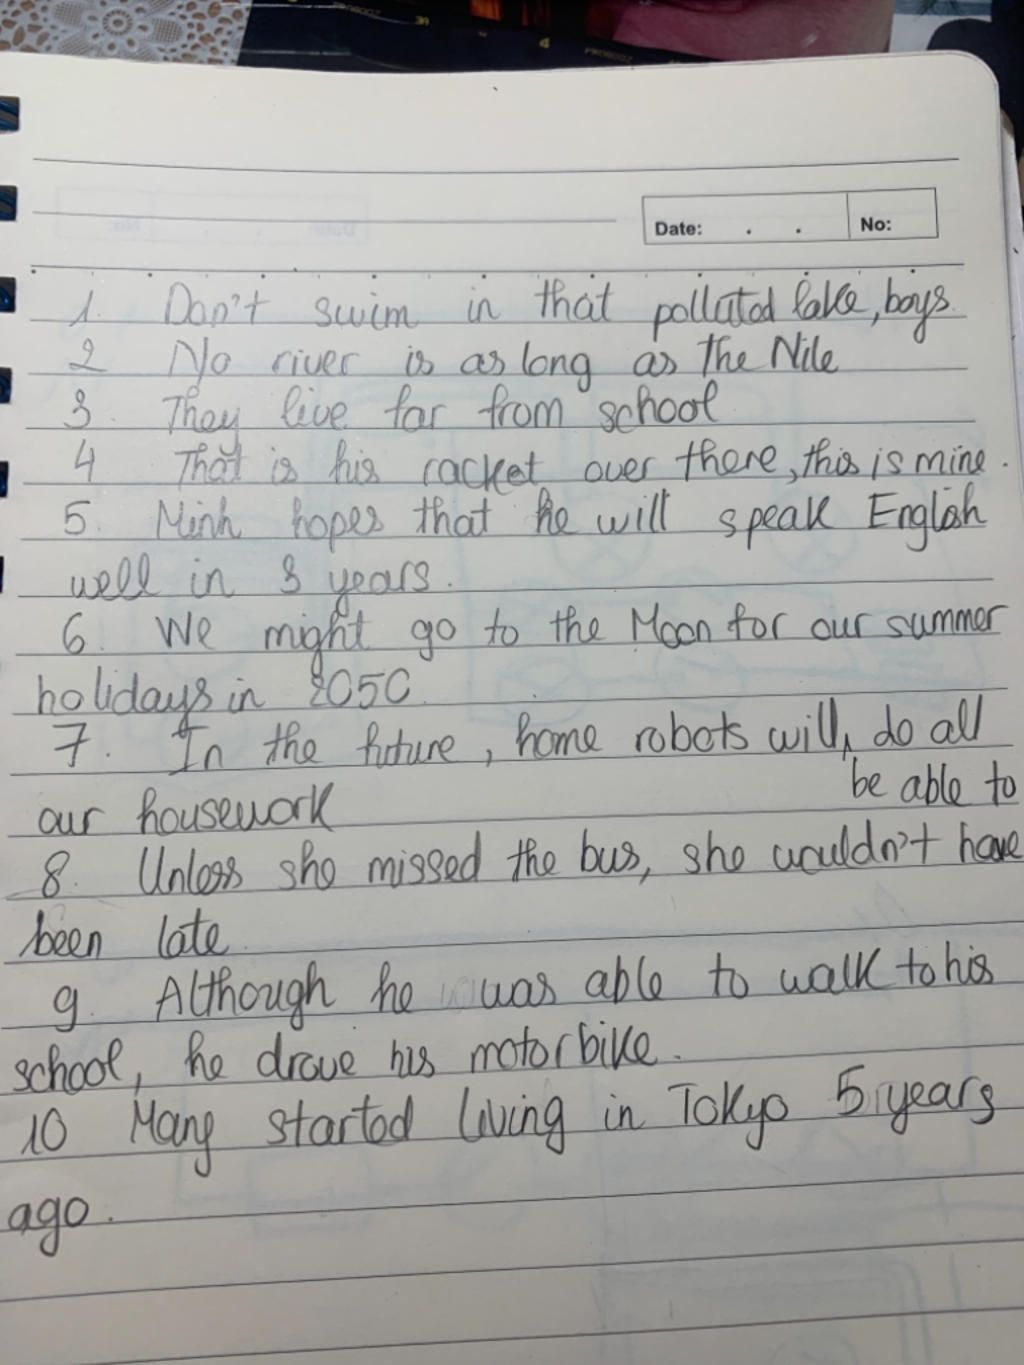 Date: . . No:
1. Don't swim in that polluted lake, boys.
2 No river is as long as the Nile
3. They live far from school
4 That is his racket over there, this is mine.
5. Minh hopes that he will speak English
well in 3 years.
6. We might go to the Moon for our summer
holidays in 2050
7. In the future, home robots will be able to do all
our housework
8. Unless she missed the bus, she wouldn't have
been late
9. Although he was able to walk to his
school, he drove his motorbike.
10 Many started living in Tokyo 5 years
ago.